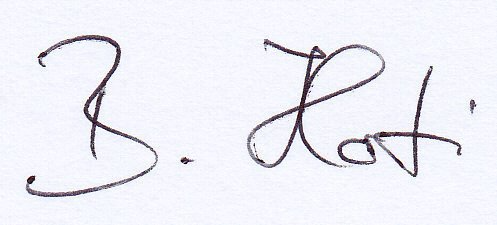 B. Hoti